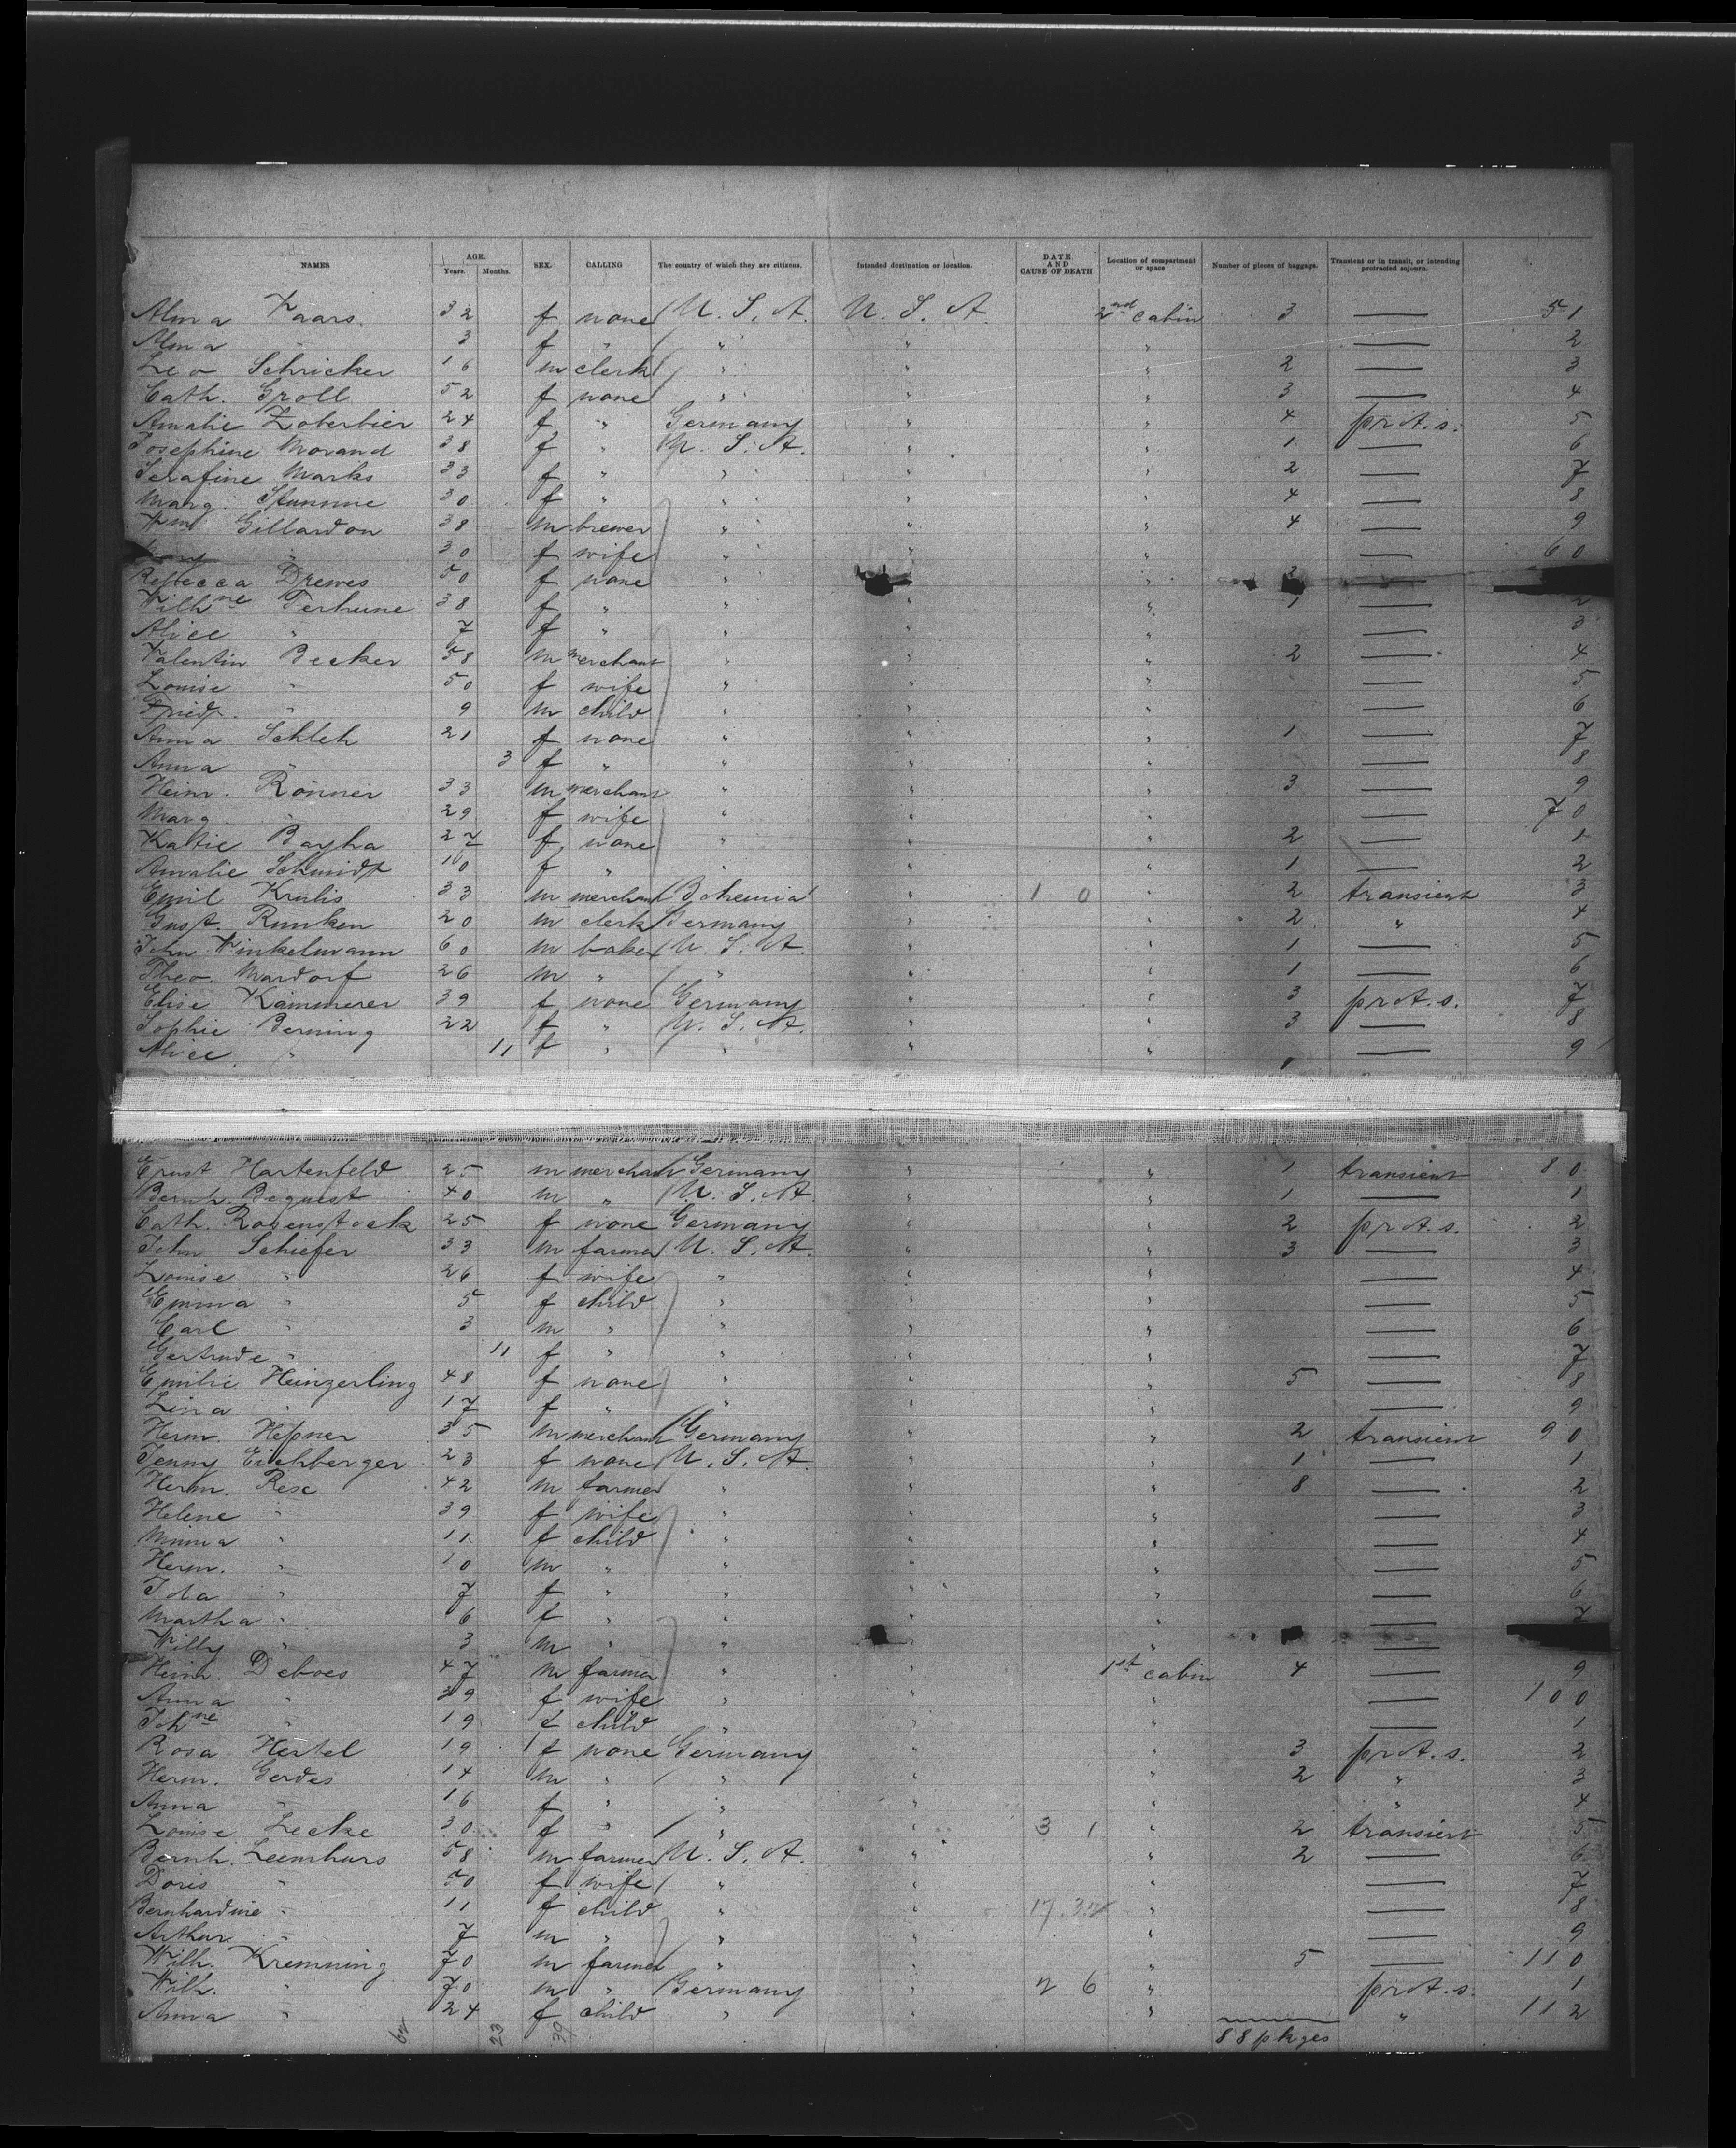 NAMES AGE. Years. Months. SEX. CALLING The country of which they are citizens. Intended destination or location. DATE AND CAUSE OF DEATH Location of compartment or space Number of pieces of baggage. Transient or in transit, or intending protracted sojourn.
Alma Kaars 32 f none U. S. A. U. S. A. 2nd cabin 3 — 51
Alma " 3 f " " " " — 2
Leo Schricker 16 m clerk " " " 2 — 3
Cath. Groll 52 f none " " " 3 — 4
Amalie Zoberbier 24 f " Germany " " 4 prt. s. 5
Josephine Morand 38 f " U. S. A. " " 1 — 6
Serafine Marks 33 f " " " " 2 — 7
Marg. 30 f " " " " 4 — 8
Wm Gillardon 38 m brewer " " " 4 — 9
" 30 f wife " " " — 60
Rebecca Drewes 50 f none " " —
Wilhne Terhune 38 f " " " " 1 — 2
Alice " 7 f " " " " — 3
Valentin Becker 58 m merchant " " " 2 — 4
Louise " 50 f wife " " " — 5
Friedr. " 9 m child " " " — 6
Anna Schleh 21 f none " " " 1 — 7
Anna " 3 f " " " " — 8
Heinr. Rönner 33 m merchant " " " 3 — 9
Marg. " 29 f wife " " " — 70
Katie Bayha 27 f none " " " 2 — 1
Amalie Schmidt 10 f " " " " 1 — 2
Emil Krulis 33 m merchant Bohemia " 10 " 2 transient 3
Gust. Runken 20 m clerk Germany " " 2 " 4
John Winkelmann 60 m baker U. S. A. " " 1 — 5
Theo. Mardorf 26 m " " " " 1 — 6
Elise Kämmerer 39 f none Germany " " 3 prt. s. 7
Sophie Berning 22 f " U. S. A. " " 3 — 8
Alice " 11 f " " " " — 9
Ernst Hartenfeld 25 m merchant Germany " " 1 transient 80
Bernh. Bequest 40 m " U. S. A. " " 1 — 1
Cath. Rosenstock 25 f none Germany " " 2 prt. s. 2
John Schiefer 33 m farmer U. S. A. " " 3 — 3
Louise " 26 f wife " " " — 4
Emma " 5 f child " " " — 5
Carl " 3 m " " " " — 6
Gertrude " 11 f " " " " — 7
Emilie Heinzerling 48 f none " " " 5 — 8
Lina " 17 f " " " " — 9
Herm. Hepner 35 m merchant Germany " " 2 transient 90
Jenny Eichberger 23 f none U. S. A. " " 1 — 1
Herm. Rese 42 m farmer " " " 8 — 2
Helene " 39 f wife " " " — 3
Minna " 11 f child " " " — 4
Herm. " 10 m " " " " — 5
Ida " 7 f " " " " — 6
Martha " 6 f " " " " — 7
Willy " 3 m " " " —
Heinr. Deboes 47 m farmer " " 1st cabin 4 — 9
Anna " 39 f wife " " " — 100
Johne " 19 f child " " " — 1
Rosa Hertel 19 f none Germany " " 3 prt. s. 2
Herm. Gerdes 14 m " " " " 2 " 3
Anna " 16 f " " " " " 4
Louise Lecke 30 f " " " 31 " 2 transient 5
Bernh. Leemhuis 58 m farmer U. S. A. " " 2 — 6
Doris " 50 f wife " " " — 7
Bernhardine " 11 f child " " " — 8
Arthur " 7 m " " " " — 9
Wilh. Kremning 70 m farmer " " " 5 — 110
Wilh. " 70 m " Germany " 26 " prt. s. 1
Anna " 24 f child " " " " 112
23 30 88 pkges